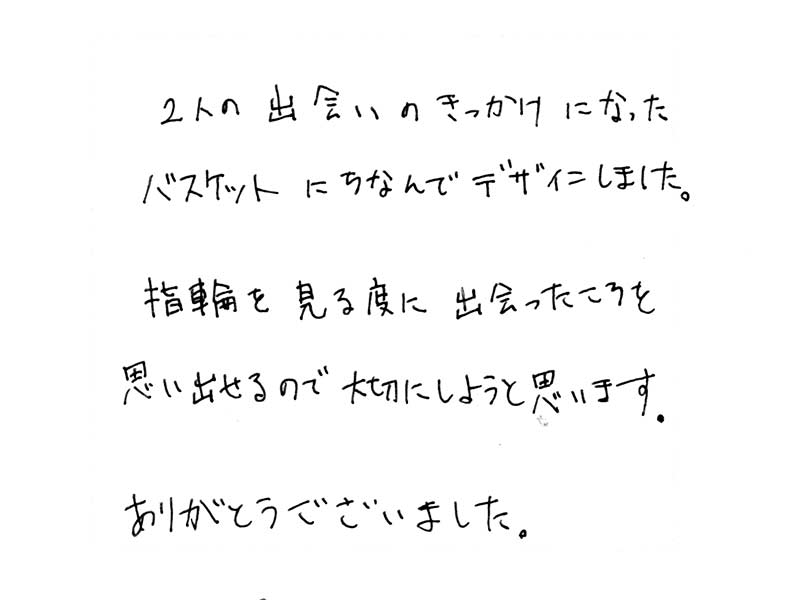 2人の出会いのきっかけになった
バスケットにちなんでデザインしました。
指輪を見る度に出会ったころを
思い出せるので大切にしようと思います.
ありがとうございました.